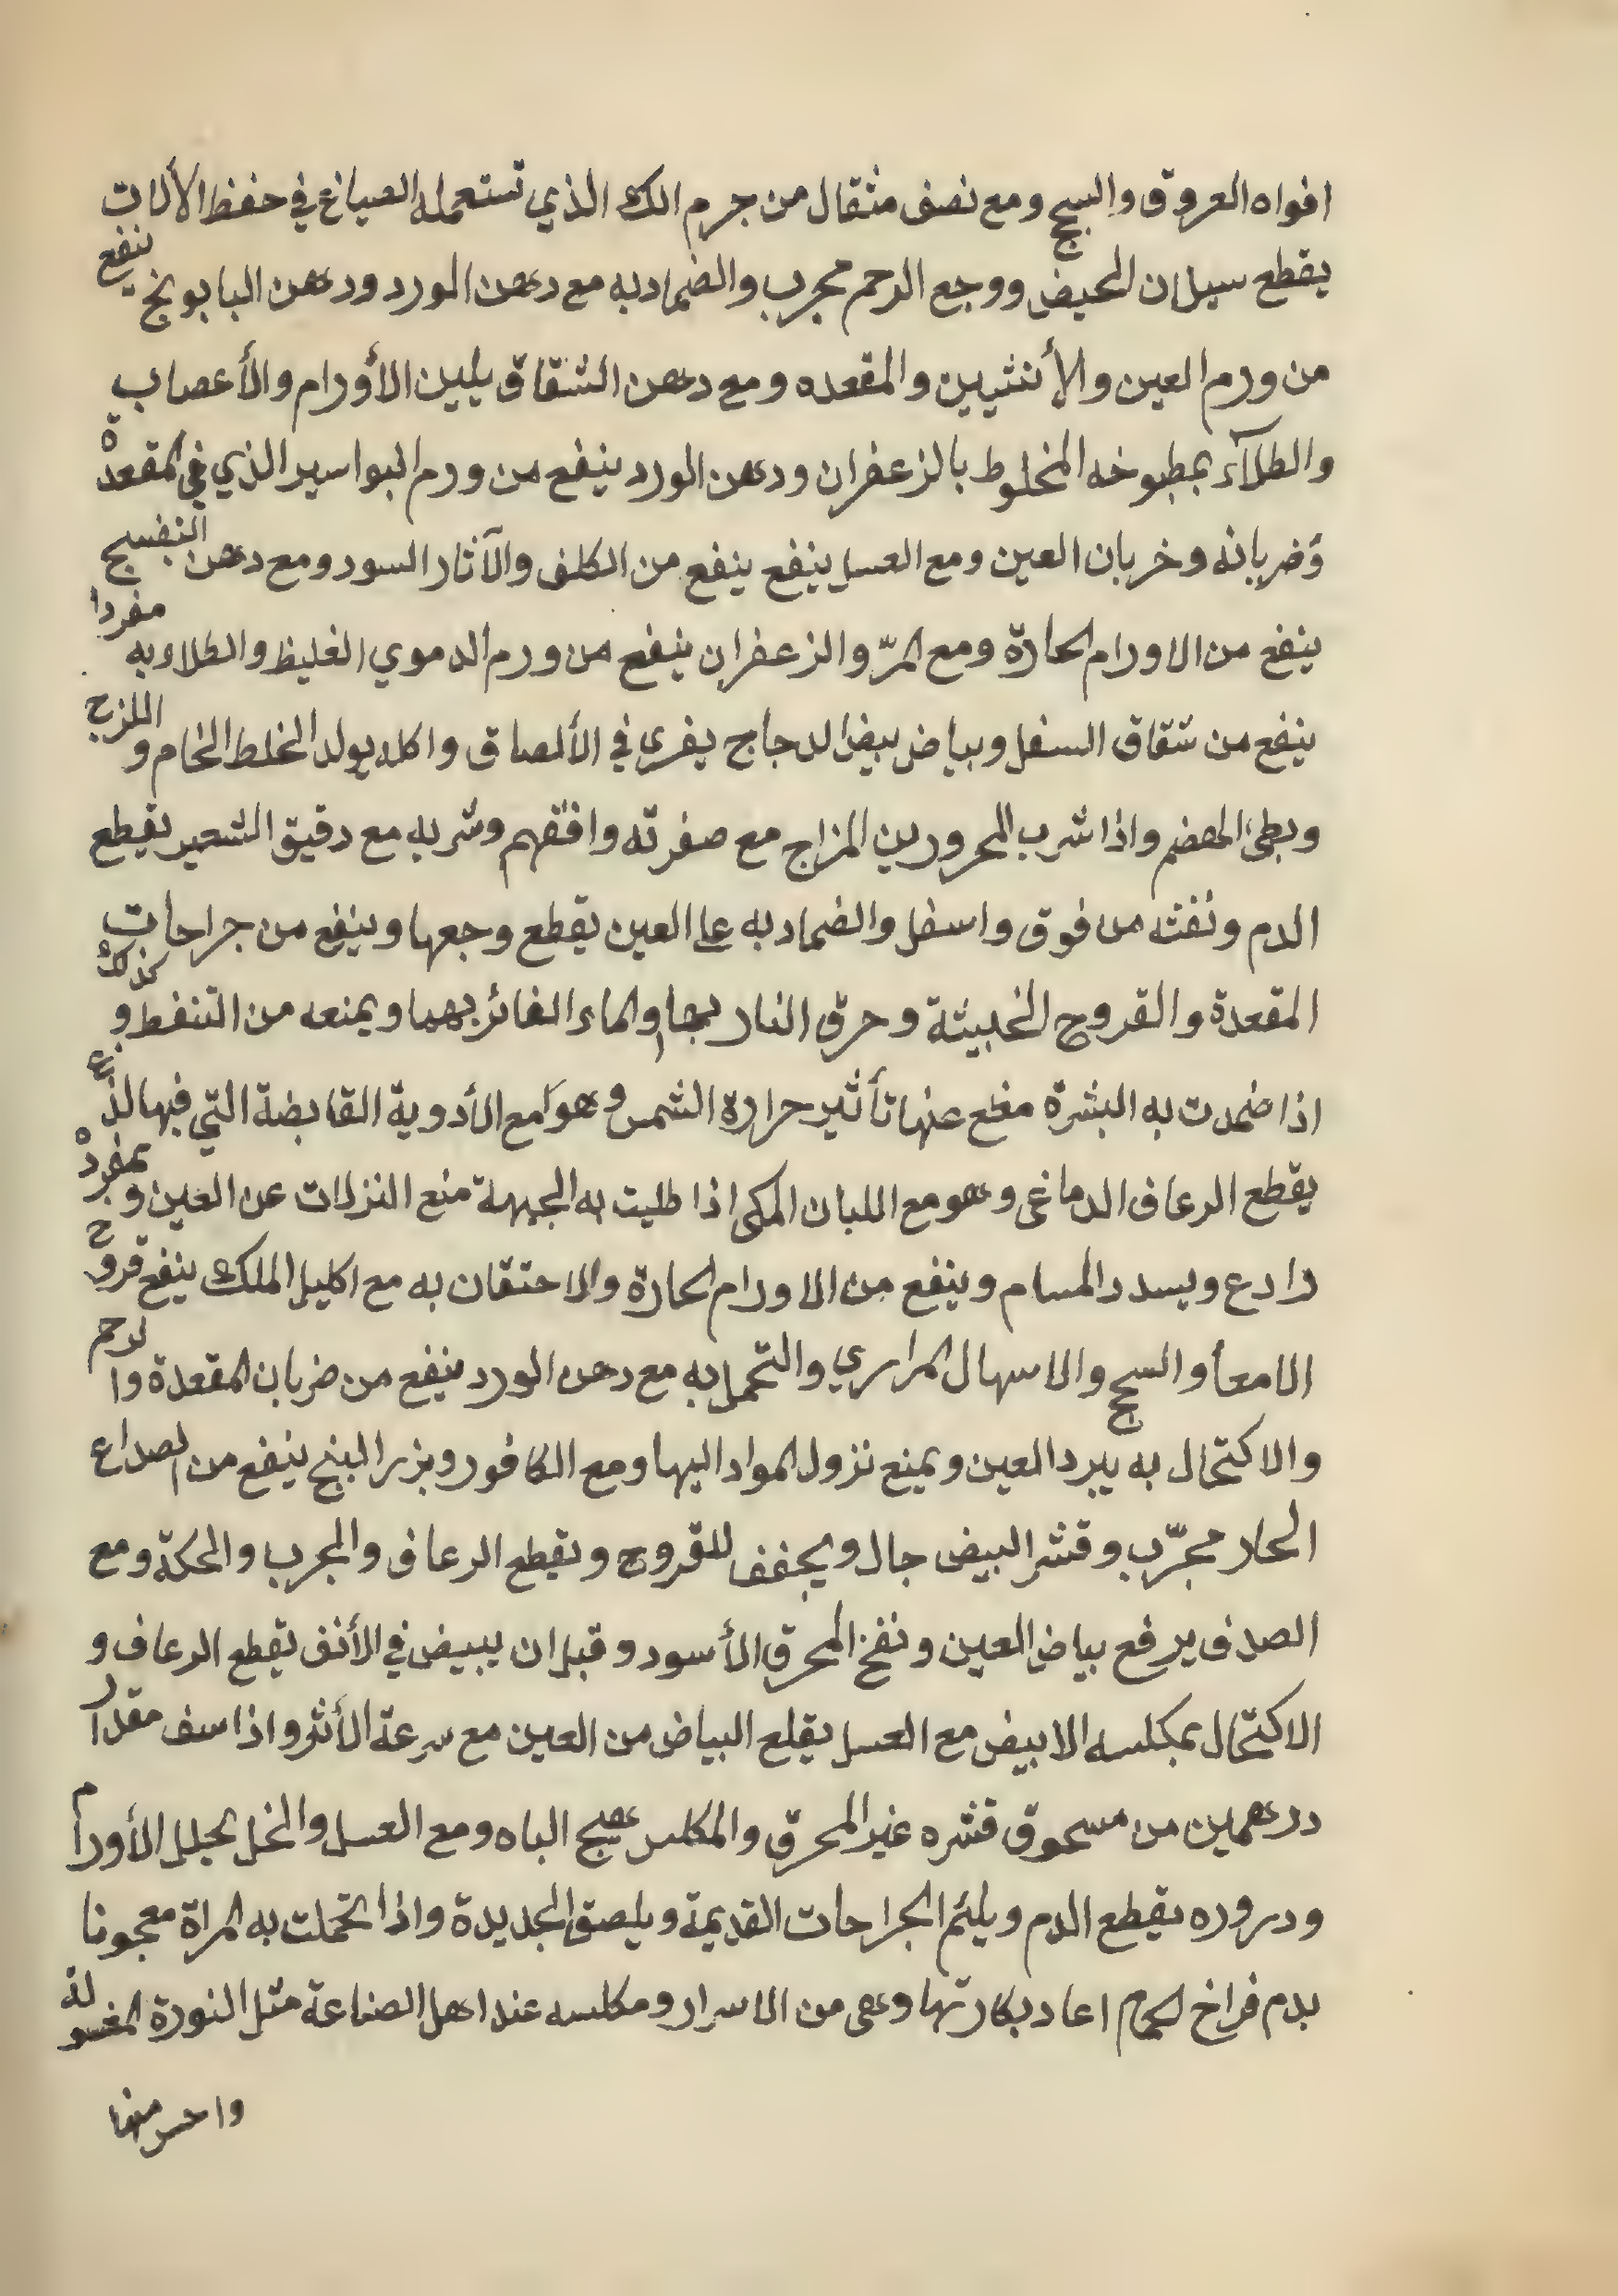 افواه العروق والسحج ومع نصف مثقال من جرم اللك الذي تستعمله الصياغ في حفظ الألات
يقطع سيلان الحيض ووجع الرحم مجرب والضماد به مع دهن الورد ودهن البابونج ينفع
من ورم العين والأنثيين والمقعده ومع دهن الشقاق يلين الأورام والأعصاب
والطلآء بمطبوخه المخلوط بالزعفران ودهن الورد ينفع من ورم البواسير الذي في المقعدة
وَضربانه وخربان العين ومع العسل ينفع ينفع من الكلف والآثار السود ومع دهن النفسج
ينفع من الاورام الحارة ومع المرّ والزعفران ينفع من ورم الدموي الغليظ والطلاء به مفردا
ينفع من شقاق السفل وبياض بيض الدجاج يغري في الألصاق واكله يولد الخلط الخام واللزج
وبطئ الهضم واذا شرب المحرورين المزاج مع صفرته وافقهم وشربه مع دقيق الشعير يقطع
الدم ونفثه من فوق واسفل والضماد به على العين يقطع وجعها وينفع من جراحات
المقعدة والقروح الخبيثة وحرق النار بها والماء الفائز بهما ويمنعه من التنفط وكذلك
اذا ضمدت به البشرة مغع عنها تأثير حرارة الشمس وهو مع الأدوية القابضة التي فيها لذع
يقطع الرعاف الدماغى وهو مع اللبان المكى اذا طليت به الجبهة منع النزلات عن العين وبمفرده
رادع ويسدد المسام وينفع من الاورام الحارة والاحتقان به مع اكليل الملك ينفع قروح
الامعأ والسحج والاسهال المراري والتحمل به مع دهن الورد ينفع من ضربان المقعدة والرحم
والاكتحال به يبرد العين ويمنع نزول المواد اليها ومع الكافور وبزر البنج ينفع من الصداع
الحار مجرّب وقشر البيض جال ويجفف للقروح ويقطع الرعاف والجرب والحكة ومع
الصدف يرفع بياض العين ونفخ المحرق الأسود وقبل ان يبيض في الأنف يقطع الرعاف و
الاكتحال بمكلسه الابيض مع العسل يقلع البياض من العين مع سرعة الأثر واذا سف مقدار
درهمين من مسحوق قشره غير المحرق والمكلس هيج الباه ومع العسل والخل يحلل الأورام
ودروره يقطع الدم ويلئم الجراحات القديمة ويلصق الجديدة واذا تحملت به المراة معجونا
بدم فراخ الحمام اعاد بكارتها وهى من الاسرار ومكلسه عند اهل الصناعة مثل النورة المغسولة
واحسن منها